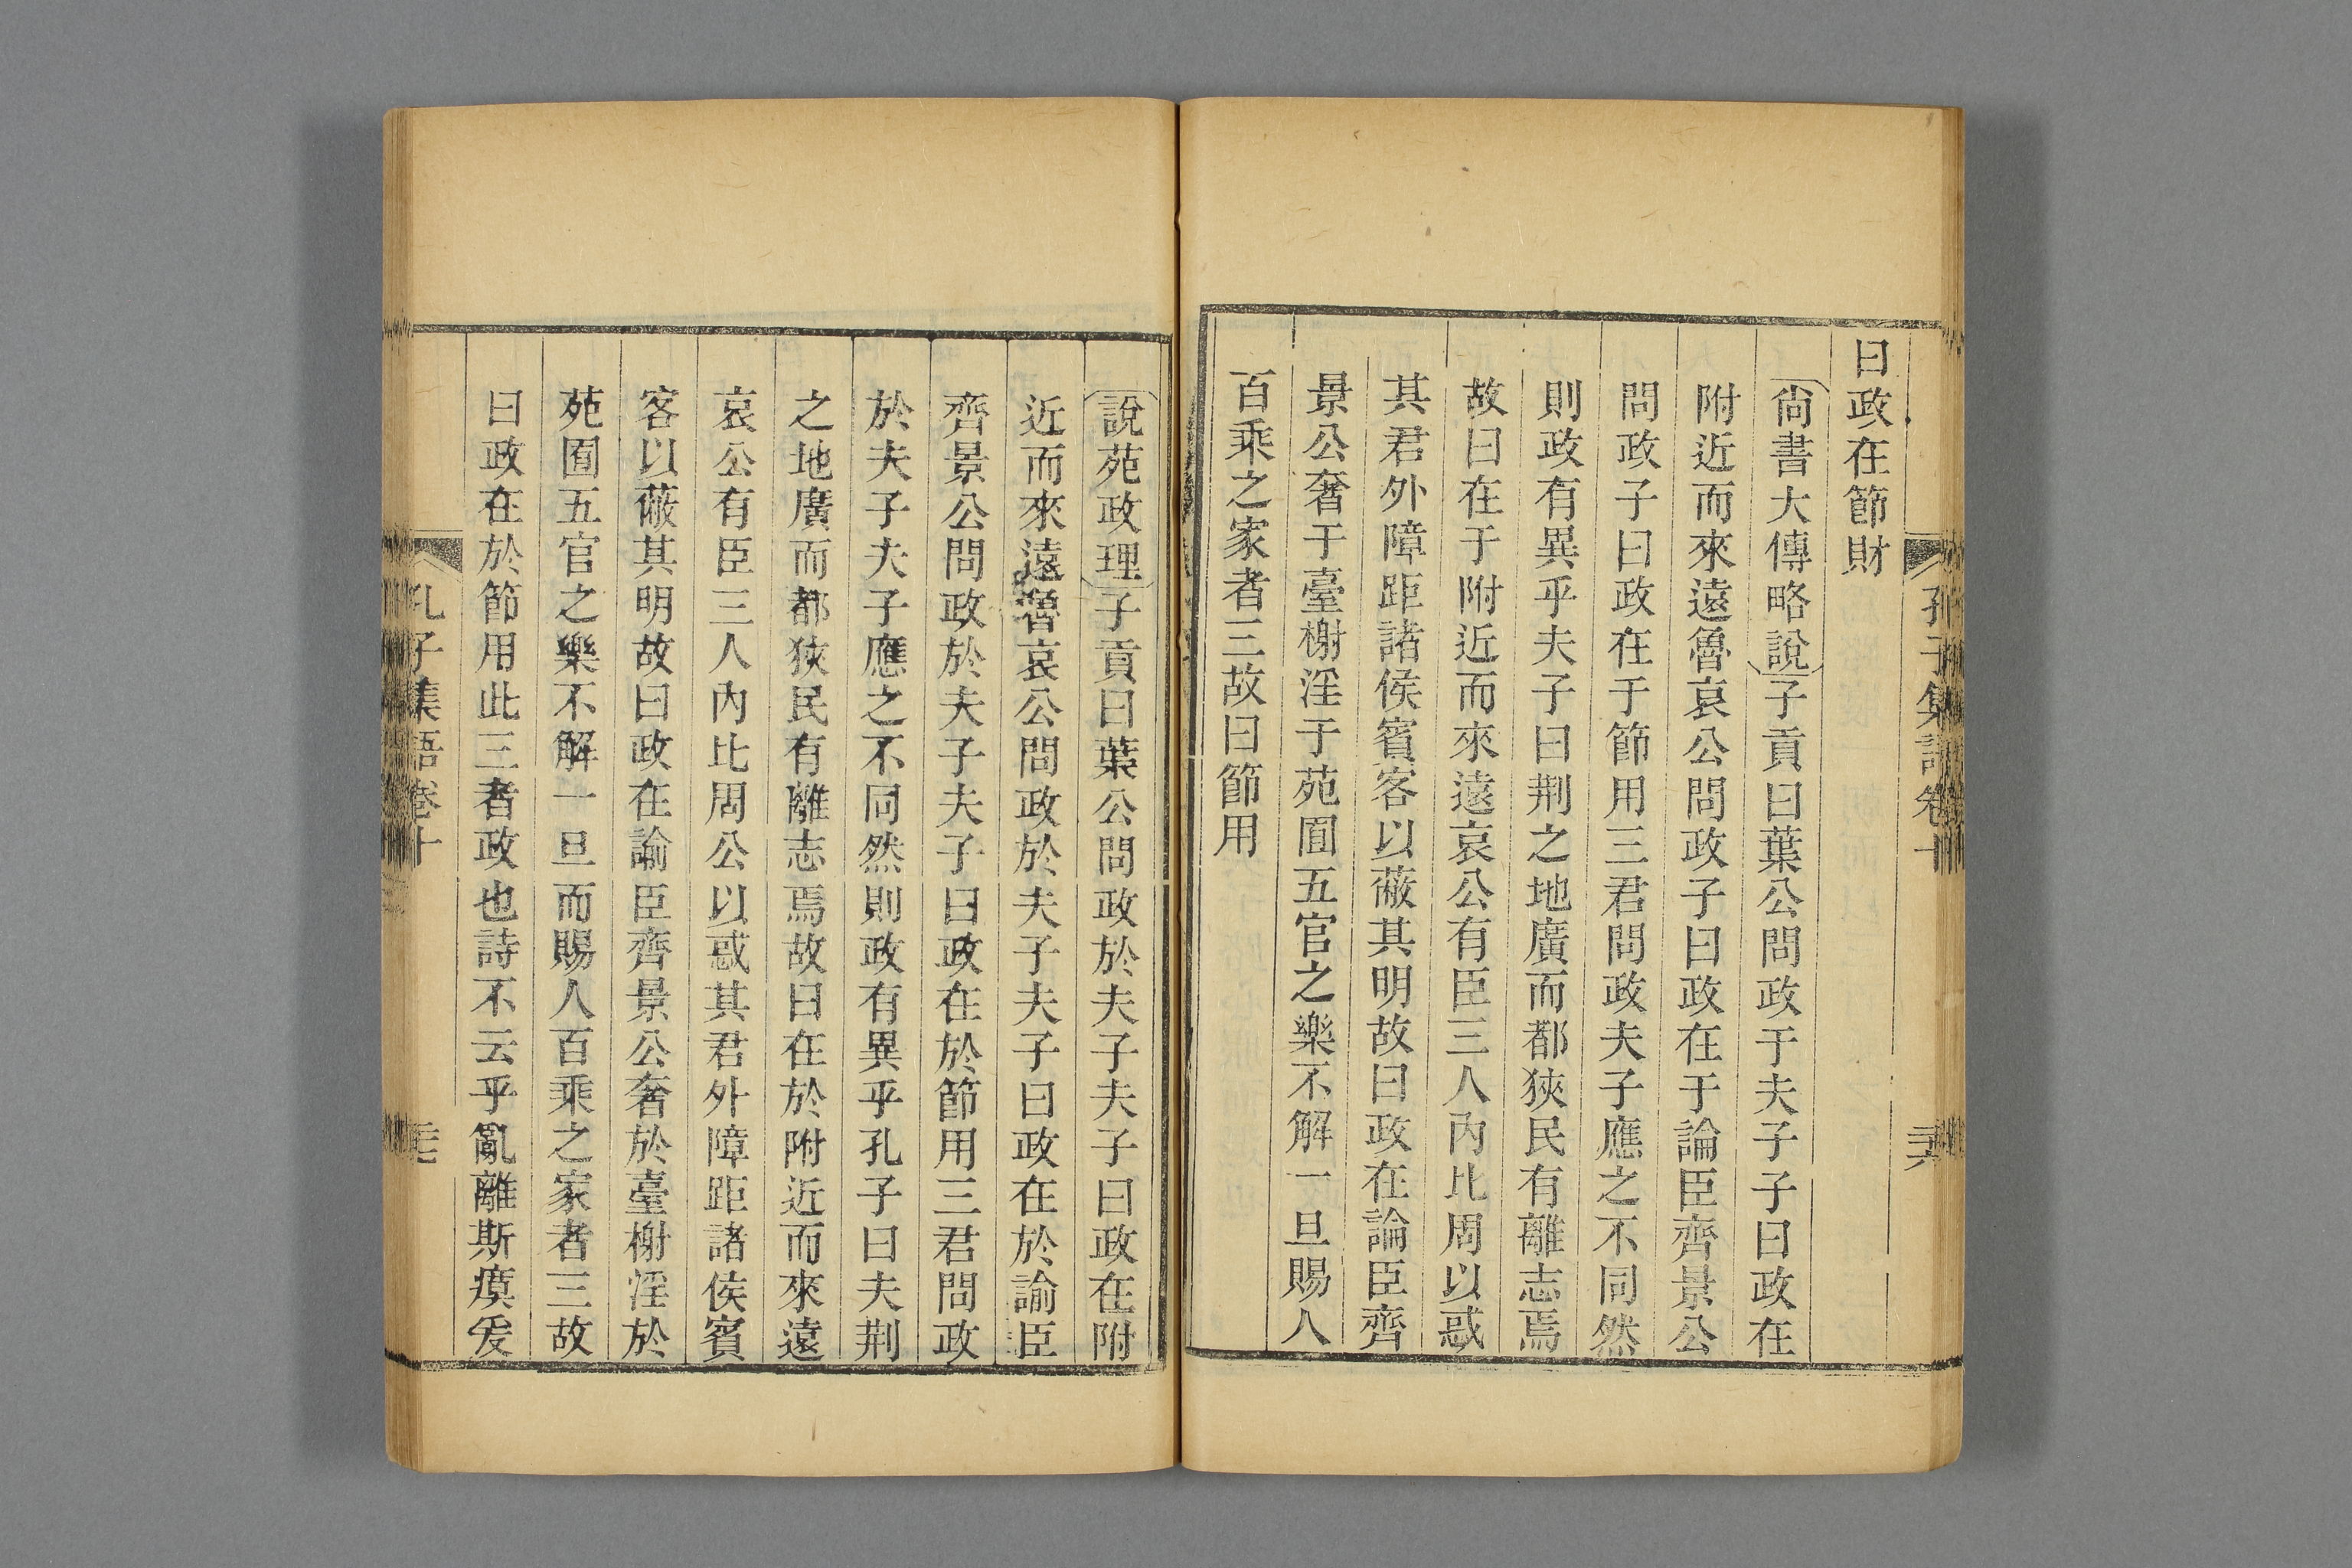 曰政在節財
尙書大傳略說子貢曰葉公問政于夫子子曰政在
附近而來遠魯哀公問政子曰政在于論臣齊景公
問政子曰政在于節用三君問政夫子應之不同然
則政有異乎夫子曰荆之地廣而都狹民有離志焉
故曰在于附近而來遠哀公有臣三人內比周以惑
其君外障距諸侯賓客以蔽其明故曰政在論臣齊
景公奢于臺榭淫于苑囿五官之樂不解一旦賜人
百乘之家者三故曰節用
孔子集語卷十
說苑政理子貢曰葉公問政於夫子夫子曰政在附
近而來遠魯哀公問政於夫子夫子曰政在於諭臣
齊景公問政於夫子夫子曰政在於節用三君問政
於夫子夫子應之不同然則政有異乎孔子曰夫荆
之地廣而都狹民有離志焉故曰在於附近而來遠
哀公有臣三人內比周公以惑其君外障距諸侯賓
客以蔽其明故曰政在諭臣齊景公奢於臺榭淫於
苑囿五官之樂不解一旦而賜人百乘之家者三故
曰政在於節用此三者政也詩不云乎亂離斯瘼爰
孔子集語卷十